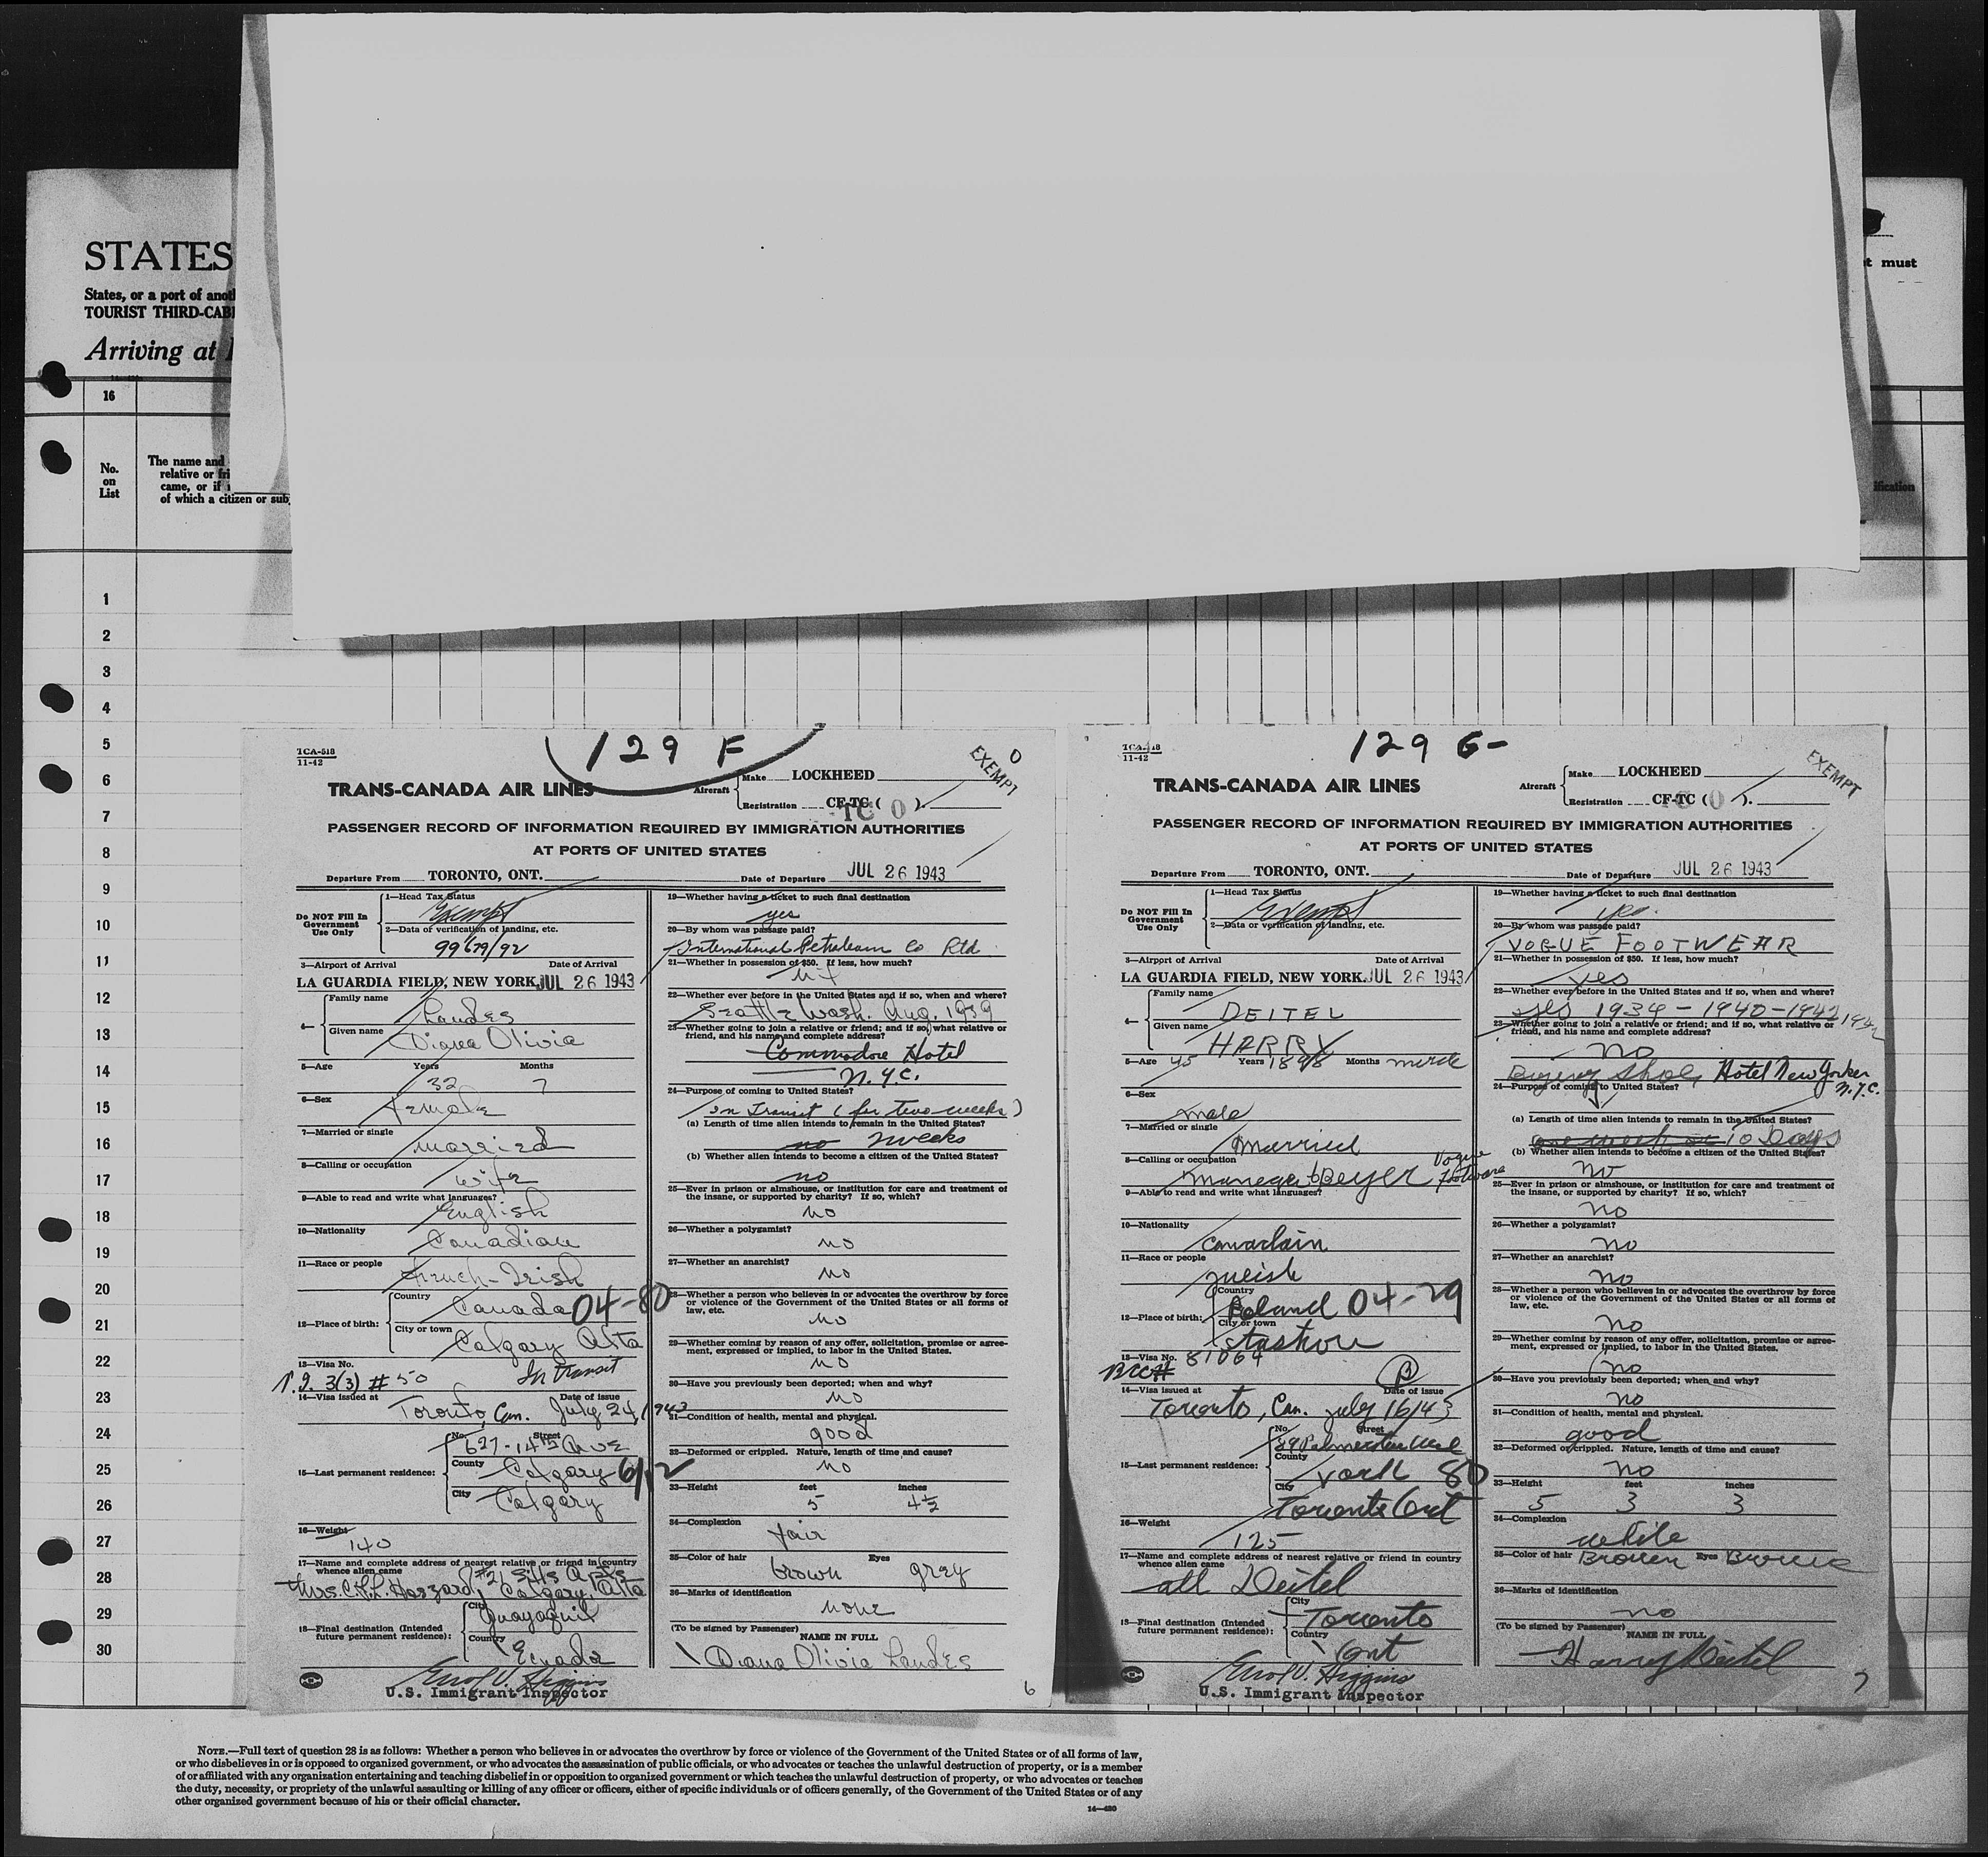 STATES
States, or a port of anot
TOURIST THIRD-CAB
Arriving at
t must
16
No.
on
List
The name and
relative or fri
came, or if
of which a citizen or sub
ification
1
2
3
4
5
6
7
8
9
10
11
12
13
14
15
16
17
18
19
20
21
22
23
24
25
26
27
28
29
30
129 F
TCA-518
11-42
EXEMPT
0
TRANS-CANADA AIR LINES
Aircraft
Make LOCKHEED
Registration CF-TC ( 0 ).
TC
PASSENGER RECORD OF INFORMATION REQUIRED BY IMMIGRATION AUTHORITIES
AT PORTS OF UNITED STATES
Departure From TORONTO, ONT. Date of Departure JUL 26 1943
Do NOT Fill In
Government
Use Only
1—Head Tax Status
Exempt
2—Data or verification of landing, etc.
99679/92
3—Airport of Arrival Date of Arrival
LA GUARDIA FIELD, NEW YORK JUL 26 1943
4—
Family name
Landes
Given name
Diana Olivia
5—Age Years Months
32 7
6—Sex
Female
7—Married or single
Married
8—Calling or occupation
Wife
9—Able to read and write what languages?
English
10—Nationality
Canadian
11—Race or people
French-Irish
12—Place of birth:
Country
Canada 04-80
City or town
Calgary Alta
13—Visa No.
3(3) # 50 In transit
14—Visa issued at Date of issue
Toronto, Can. July 24, 1943
15—Last permanent residence:
No. Street
627-14th Ave
County
Calgary
City
Calgary
16—Weight
140
17—Name and complete address of nearest relative or friend in country
whence alien came
Mrs. Hazzard, Calgary, Alta
18—Final destination (Intended
future permanent residence):
City
Guayaquil
Country
Ecuador
Errol V. Higgins
U.S. Immigrant Inspector
19—Whether having a ticket to such final destination
yes
20—By whom was passage paid?
International Petroleum Co Ltd
21—Whether in possession of $50. If less, how much?
22—Whether ever before in the United States and if so, when and where?
Seattle Wash. Aug. 1939
23—Whether going to join a relative or friend; and if so, what relative or
friend, and his name and complete address?
Commodore Hotel
N.Y.C.
24—Purpose of coming to United States?
In Transit (for two weeks)
(a) Length of time alien intends to remain in the United States?
no 2 weeks
(b) Whether alien intends to become a citizen of the United States?
no
25—Ever in prison or almshouse, or institution for care and treatment of
the insane, or supported by charity? If so, which?
no
26—Whether a polygamist?
no
27—Whether an anarchist?
no
28—Whether a person who believes in or advocates the overthrow by force
or violence of the Government of the United States or all forms of
law, etc.
no
29—Whether coming by reason of any offer, solicitation, promise or agree-
ment, expressed or implied, to labor in the United States.
no
30—Have you previously been deported; when and why?
no
31—Condition of health, mental and physical.
good
32—Deformed or crippled. Nature, length of time and cause?
no
33—Height feet inches
5 4½
34—Complexion
fair
35—Color of hair Eyes
brown grey
36—Marks of identification
none
(To be signed by Passenger)
NAME IN FULL
Diana Olivia Landes
6
129 G-
11-42
EXEMPT
TRANS-CANADA AIR LINES
Aircraft
Make LOCKHEED
Registration CF-TC ( 0 ).
PASSENGER RECORD OF INFORMATION REQUIRED BY IMMIGRATION AUTHORITIES
AT PORTS OF UNITED STATES
Departure From TORONTO, ONT. Date of Departure JUL 26 1943
Do NOT Fill In
Government
Use Only
1—Head Tax Status
Exempt
2—Data or verification of landing, etc.
3—Airport of Arrival Date of Arrival
LA GUARDIA FIELD, NEW YORK JUL 26 1943
4—
Family name
DEITEL
Given name
HARRY
5—Age 45 Years 1898 Months
6—Sex
male
7—Married or single
Married
8—Calling or occupation
Vogue
9—Able to read and write what languages?
10—Nationality
Canadain
11—Race or people
12—Place of birth:
Country
Poland 04-29
City or town
Stashow
13—Visa No. 81064
BCC# B
14—Visa issued at Date of issue
Toronto, Can. July 16/43
15—Last permanent residence:
No. Street
County
York 80
City
Toronto Ont
16—Weight
125
17—Name and complete address of nearest relative or friend in country
whence alien came
all Deitel
18—Final destination (Intended
future permanent residence):
City
Toronto
Country
Ont
Errol V. Higgins
U.S. Immigrant Inspector
19—Whether having a ticket to such final destination
yes.
20—By whom was passage paid?
VOGUE FOOTWEAR
21—Whether in possession of $50. If less, how much?
yes
22—Whether ever before in the United States and if so, when and where?
yes 1934-1940-1942 1942
23—Whether going to join a relative or friend; and if so, what relative or
friend, and his name and complete address?
no
Buying Shoe, Hotel New Yorker
N.Y.C.
24—Purpose of coming to United States?
(a) Length of time alien intends to remain in the United States?
one week or 10 Days
(b) Whether alien intends to become a citizen of the United States?
no
25—Ever in prison or almshouse, or institution for care and treatment of
the insane, or supported by charity? If so, which?
no
26—Whether a polygamist?
no
27—Whether an anarchist?
no
28—Whether a person who believes in or advocates the overthrow by force
or violence of the Government of the United States or all forms of
law, etc.
no
29—Whether coming by reason of any offer, solicitation, promise or agree-
ment, expressed or implied, to labor in the United States.
no
30—Have you previously been deported; when and why?
no
31—Condition of health, mental and physical.
good
32—Deformed or crippled. Nature, length of time and cause?
no
33—Height feet inches
5 3 3
34—Complexion
white
35—Color of hair Brown Eyes Brown
36—Marks of identification
no
(To be signed by Passenger)
NAME IN FULL
Harry Deitel
7
NOTE.—Full text of question 28 is as follows: Whether a person who believes in or advocates the overthrow by force or violence of the Government of the United States or of all forms of law,
or who disbelieves in or is opposed to organized government, or who advocates the assassination of public officials, or who advocates or teaches the unlawful destruction of property, or is a member
of or affiliated with any organization entertaining and teaching disbelief in or opposition to organized government or which teaches the unlawful destruction of property, or who advocates or teaches
the duty, necessity, or propriety of the unlawful assaulting or killing of any officer or officers, either of specific individuals or of officers generally, of the Government of the United States or of any
other organized government because of his or their official character.
14—480